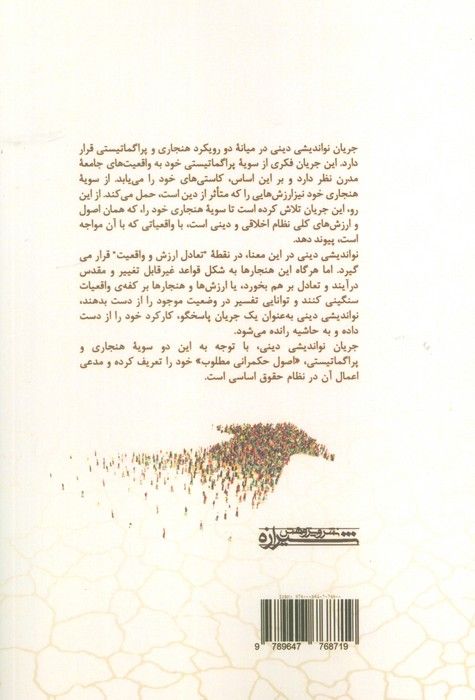 جریان نواندیشی دینی در میانهٔ دو رویکرد هنجاری و پراگماتیستی قرار
دارد. این جریان فکری از سویهٔ پراگماتیستی خود به واقعیت‌های جامعهٔ
مدرن نظر دارد و بر این اساس، کاستی‌های خود را می‌یابد. از سویهٔ
هنجاری خود نیزارزش‌هایی را که متأثر از دین است، حمل می‌کند. از این
رو، این جریان تلاش کرده است تا سویهٔ هنجاری خود را، که همان اصول
و ارزش‌های کلی نظام اخلاقی و دینی است، با واقعیاتی که با آن مواجه
است، پیوند دهد.
نواندیشی دینی در این معنا، در نقطهٔ "تعادل ارزش و واقعیت" قرار می
گیرد. اما هرگاه این هنجارها به شکل قواعد غیرقابل تغییر و مقدس
درآیند و تعادل بر هم بخورد، یا ارزش‌ها و هنجارها بر کفه‌ی واقعیات
سنگینی کنند و توانایی تفسیر در وضعیت موجود را از دست بدهند،
نواندیشی دینی به‌عنوان یک جریان پاسخگو، کارکرد خود را از دست
داده و به حاشیه رانده می‌شود.
جریان نواندیشی دینی، با توجه به این دو سویهٔ هنجاری و
پراگماتیستی، «اصول حکمرانی مطلوب» خود را تعریف کرده و مدعی
اعمال آن در نظام حقوق اساسی است.
نشر و پژوهش
شیرازه
9 789647 768719